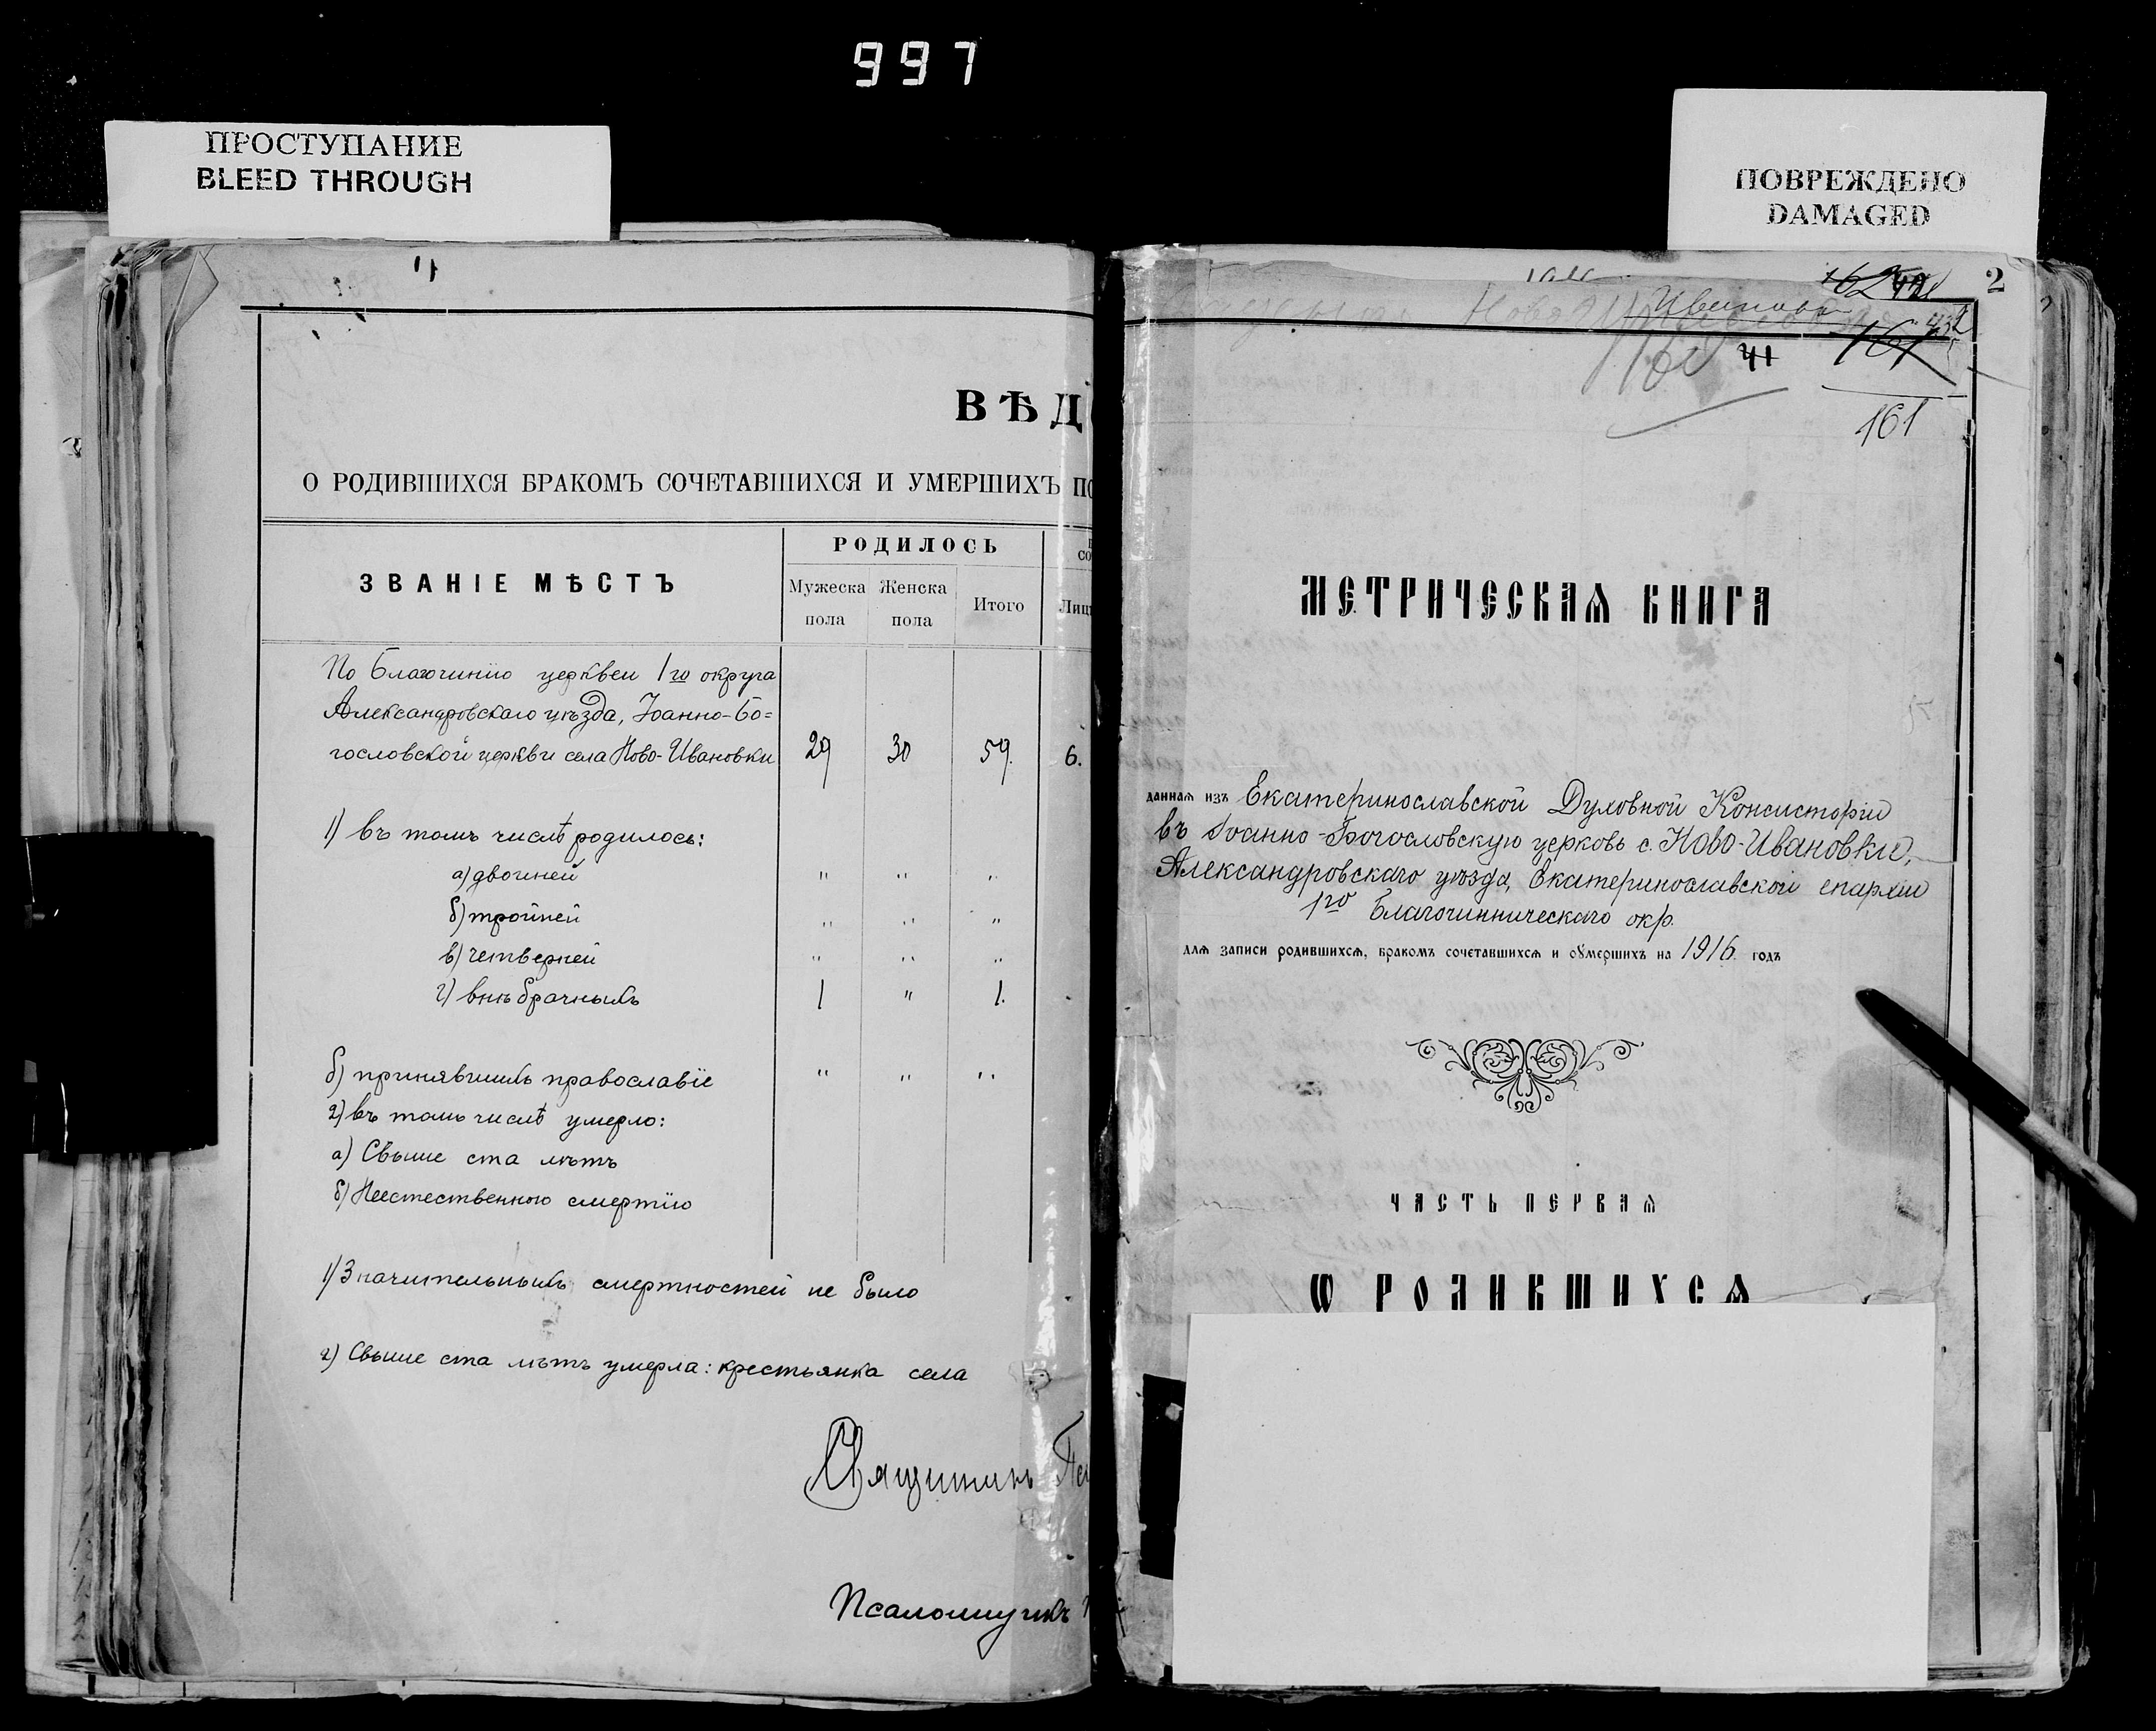 997
ПРОСТУПАНИЕ
BLEED THROUGH
ПОВРЕЖДЕНО
DAMAGED
ВѢД
О РОДИВШИХСЯ БРАКОМЪ СОЧЕТАВШИХСЯ И УМЕРШИХЪ ПО
ЗВАНІЕ МѢСТЪ
РОДИЛОСЬ
Мужеска пола
Женска пола
Итого
Лиц
По Благочинію церквей 1го округа
Александровскаго уѣзда, Іоанно-Бо=
гословской церкви села Ново-Ивановки 29 30 59. 6.
1) въ томъ числѣ родилось:
а) двойней " " "
б) тройней " " "
в) четверней " " "
г) внѣбрачныхъ 1 " 1.
б) принявшихъ православіе " " "
2) въ томъ числѣ умерло:
а) Свыше ста лѣтъ
б) Неестественною смертію
1) Значительныхъ смертностей не было
2) Свыше ста лѣтъ умерла: крестьянка села
Священникъ
Псаломщикъ
2
Иванова
41
161
161
МЕТРИЧЕСКАѦ КНИГА
даннаѧ изъ Екатеринославской Духовной Консисторіи
въ Іоанно-Богословскую церковь с. Ново-Ивановки,
Александровскаго уѣзда, Екатеринославской епархіи
1го Благочинническаго окр.
длѧ записи родившихсѧ, бракомъ сочетавшихсѧ и ᲂумершихъ на 1916 годъ
ЧАСТЬ ПЕРВАѦ
Ѡ РОДИВШИХСѦ